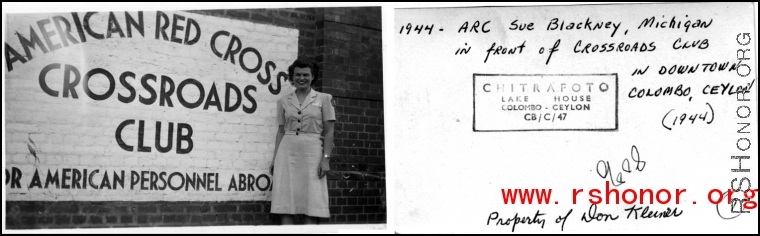 AMERICAN RED CROSS
CROSSROADS
CLUB
OR AMERICAN PERSONNEL ABROA
1944 - ARC Sue Blackney, Michigan
in front of CROSSROADS CLUB
IN DOWNTOWN
COLOMBO, CEYLON
(1944)
CHITRAFOTO
LAKE HOUSE
COLOMBO - CEYLON
CB/C/47
www.rshonor.org
Property of Don Kleiner
RSHONOR.ORG